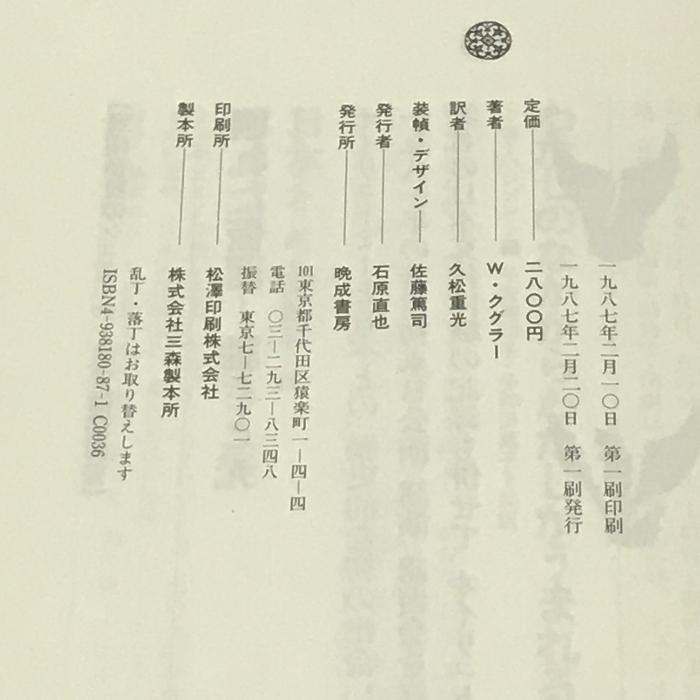 一九八七年二月一〇日　第一刷印刷
一九八七年二月二〇日　第一刷発行
定価――二八〇〇円
著者――W・クグラー
訳者――久松重光
装幀・デザイン――佐藤篤司
発行者――石原直也
発行所――晩成書房
101東京都千代田区猿楽町一―四―四
電話　〇三―二九三―八三四八
振替　東京七―七二九〇一
印刷所――松澤印刷株式会社
製本所――株式会社三森製本所
乱丁・落丁はお取り替えします
ISBN4-938180-87-1 C0036